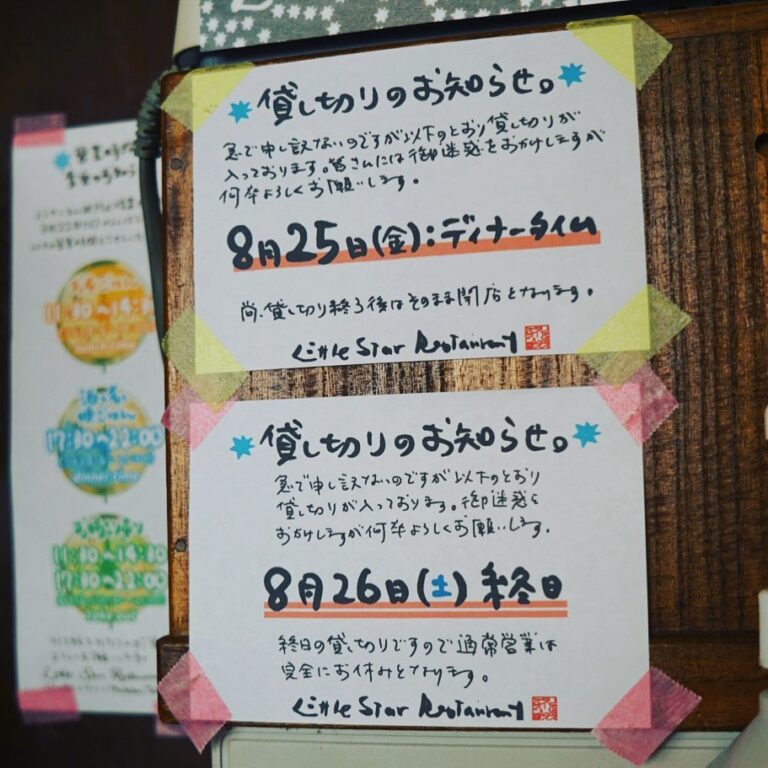 貸し切りのお知らせ。
急で申し訳ないのですが以下のとおり貸し切りが
入っております。皆さんには御迷惑をおかけしますが
何卒よろしくお願いします。
8月25日(金):ディナータイム
尚、貸し切り終了後はそのまま閉店となります。
Little Star Restaurant
貸し切りのお知らせ。
急で申し訳ないのですが以下のとおり
貸し切りが入っております。御迷惑を
おかけしますが何卒よろしくお願いします。
8月26日(土)終日
終日の貸し切りですので通常営業は
完全にお休みとなります。
Little Star Restaurant
11:30〜14:30
17:30〜22:00
dinner time
11:30〜14:30
17:30〜22:00
take out